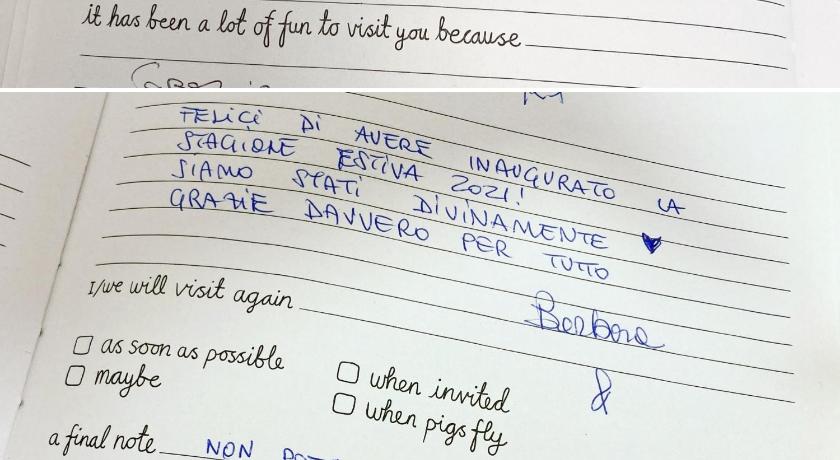 it has been a lot of fun to visit you because
FELICI DI AVERE INAUGURATO LA
STAGIONE ESTIVA 2021!
SIAMO STATI DIVINAMENTE ♥
GRAZIE DAVVERO PER TUTTO
Barbara
&
I/we will visit again
as soon as possible
maybe
when invited
when pigs fly
a final note NON